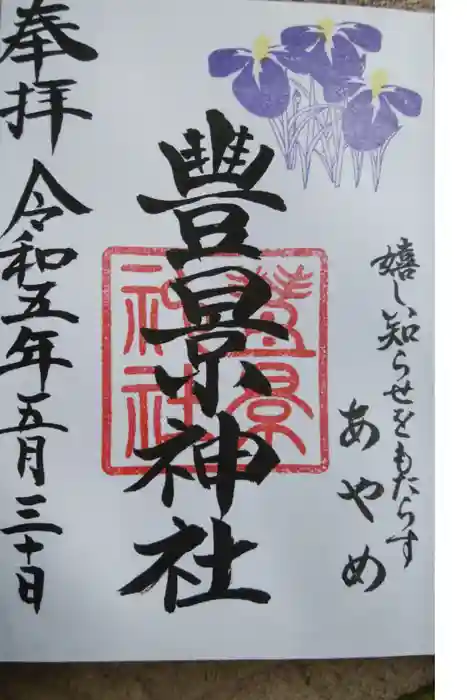 嬉しい知らせをもたらす
あやめ
豊景神社
豊景神社
奉拝
令和五年五月三十日